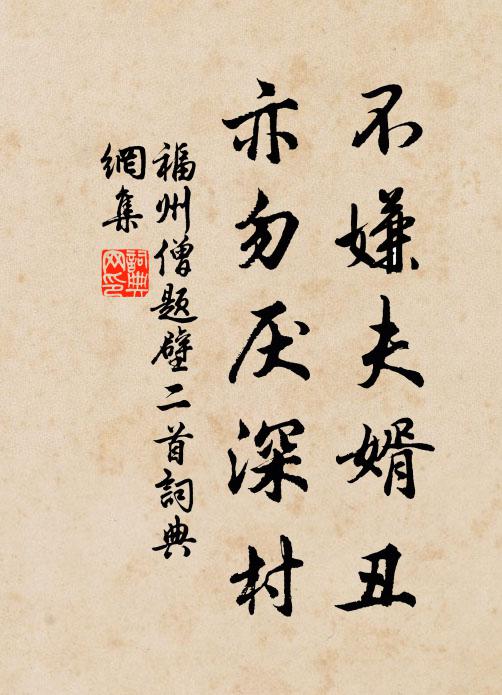 不嫌夫婿丑
亦勿厌深村
福州僧题壁二首詞典
網集
詞典
网印